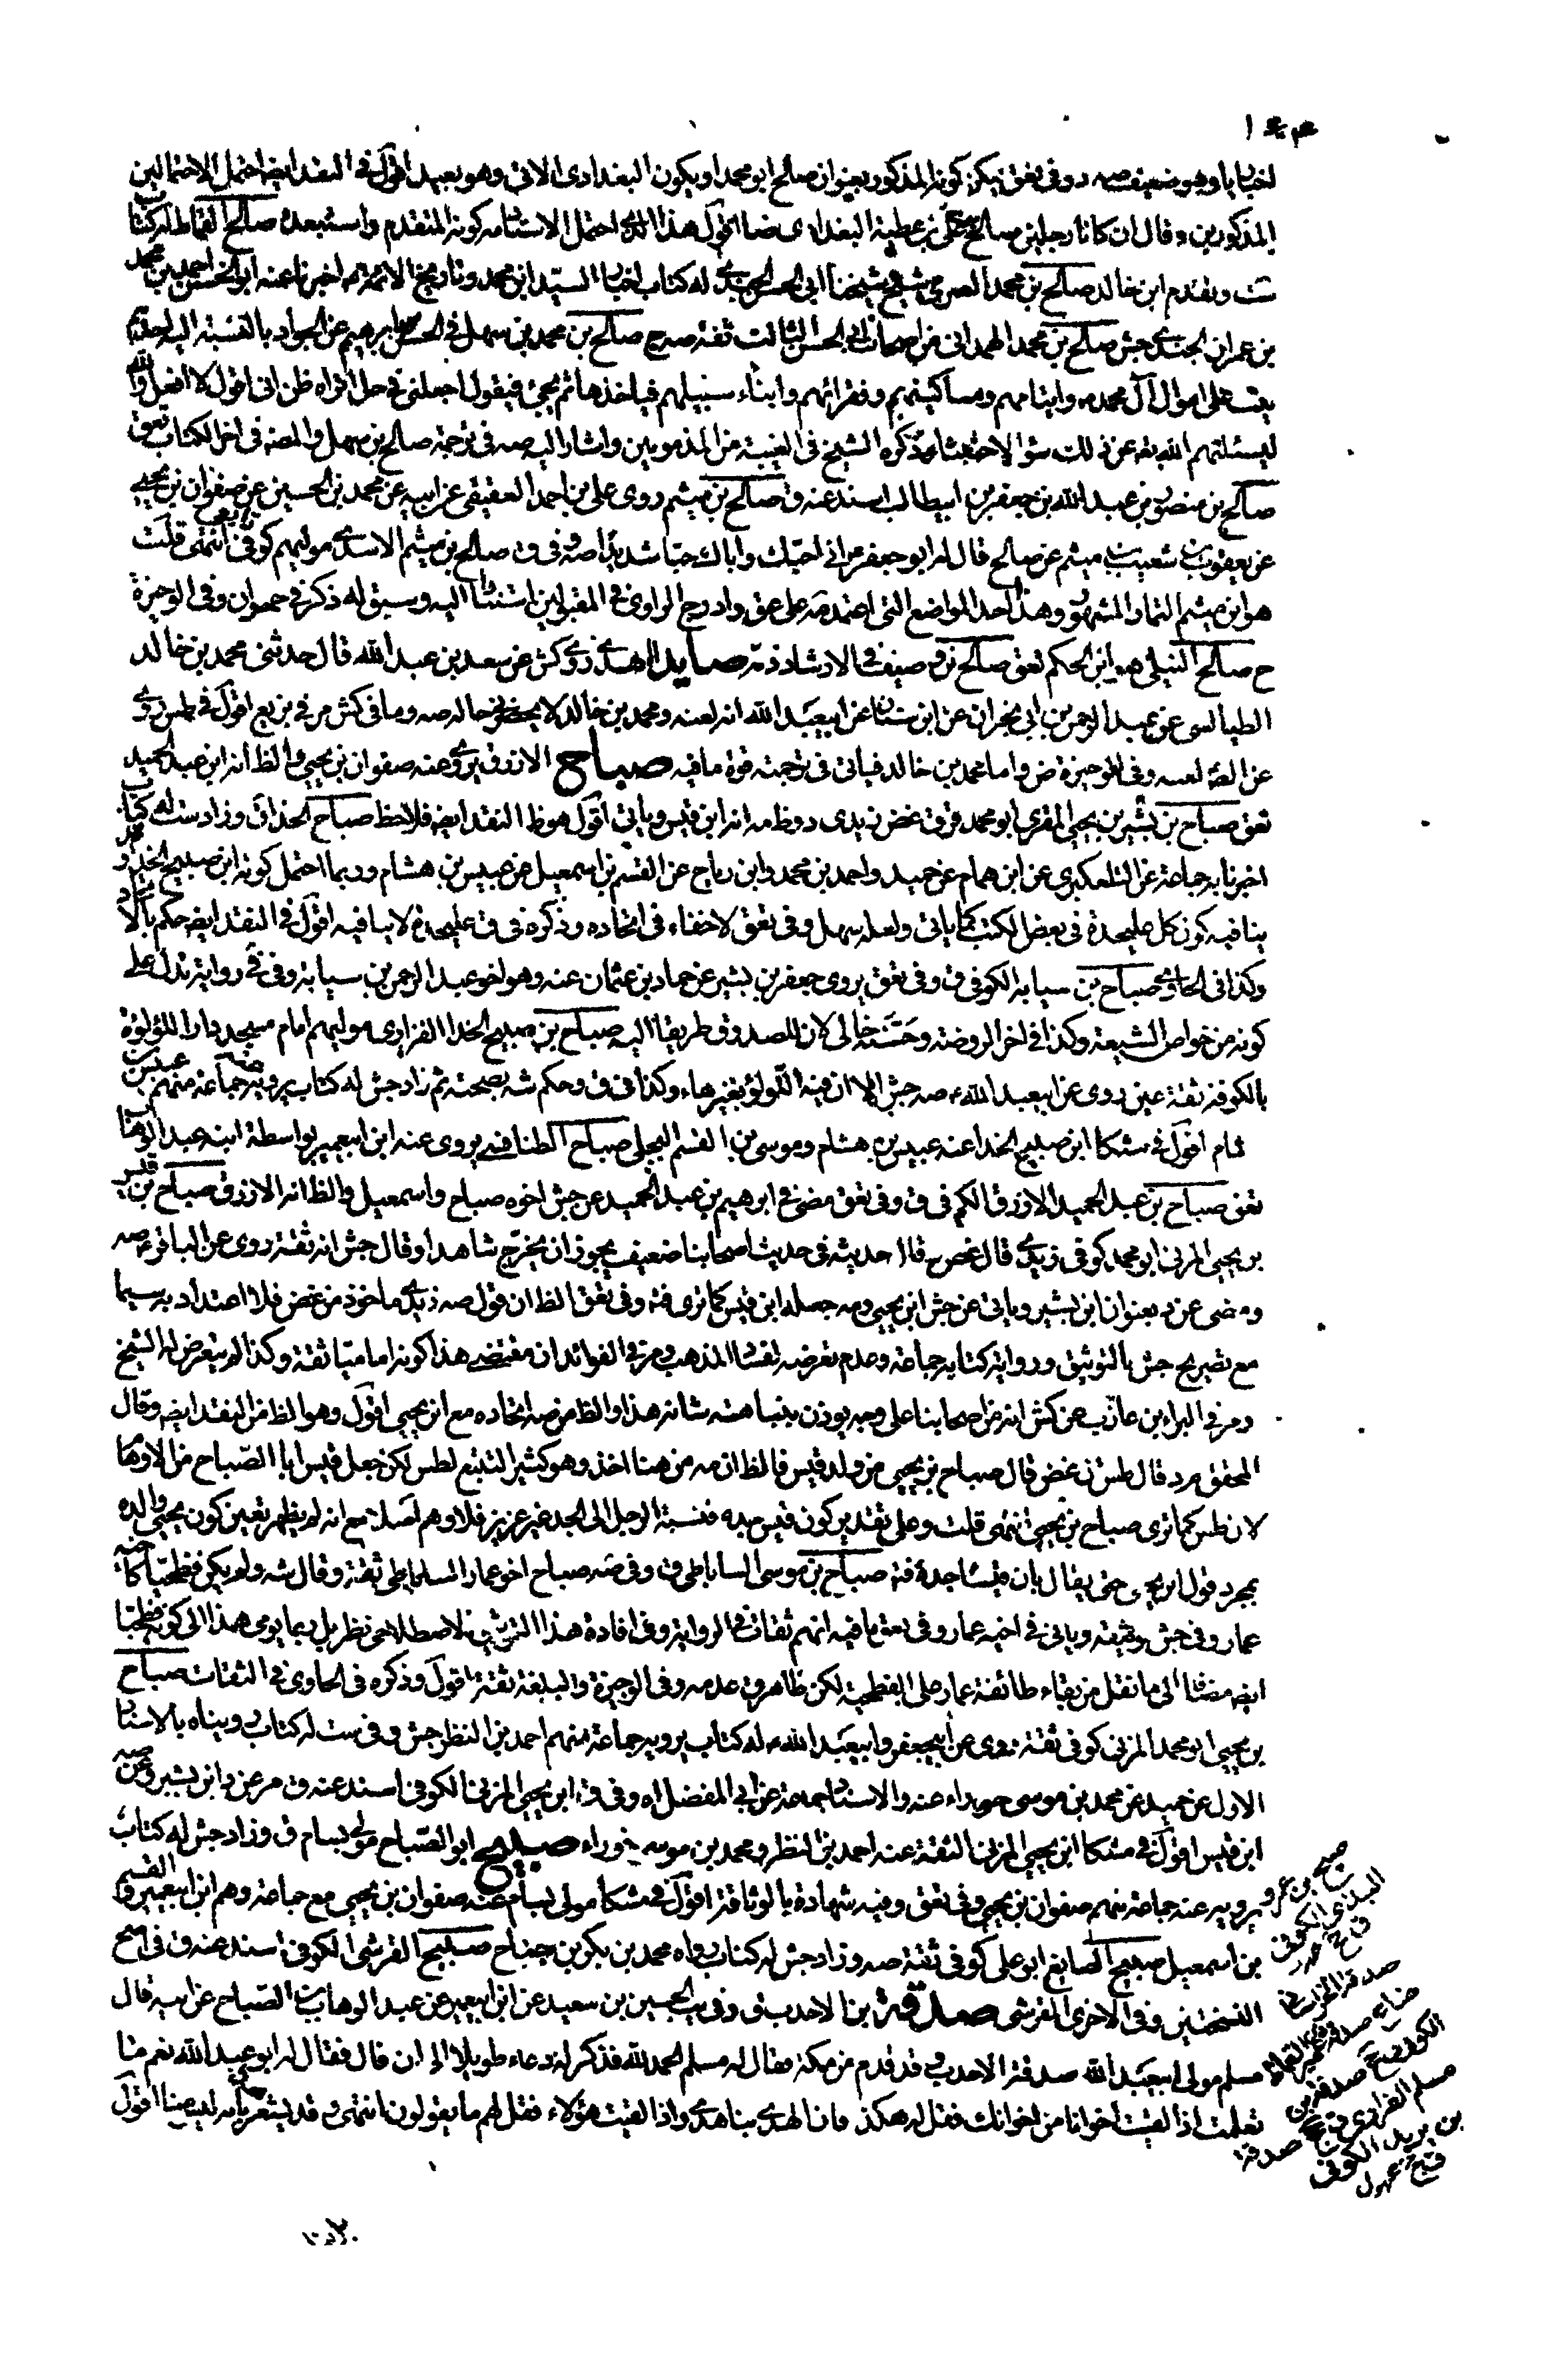 اخباريا وهو ضعيف صه د وفى تعق يمكن كونه المذكور بعنوان صالح ابو محمد او يكون البغدادى الاتى وهو بعيد اقول فى النقد ايضا احتمل الاحتمالين
المذكورين وقال ان كانا رجلين صالح بن على بن عطية البغدادى ضا اقول هذا الذى احتمل الاستاد كونه المتقدم واستبعده صالح القماط له كتاب
ست وتقدم ابن خالد صالح بن محمد الصرمى شيخ شيخنا ابى الحسن الجندى له كتاب اخبار السيد ابن محمد وتاريخ الائمة اخبرنا عنه ابو الحسن احمد بن محمد
بن عمران الجندى جش صالح بن محمد الهمدانى من اصحاب ابى الحسن الثالث ثقة صه ج صالح بن محمد بن سهل فى الحسن ابرهيم عن الجواد بالنسبة اليه احدهم
يثب على اموال آل محمد وايتامهم ومساكينهم وفقرائهم وابناء سبيلهم فياخذها ثم يجئ فيقول اجعلنى فى حل اتراه ظن انى اقول لا افعل والله
ليسئلنهم الله يوم عن ذلك سؤالا حثيثا وذكره الشيخ فى الغيبة من المذمومين واشار اليه صه فى ترجمة صالح بن سهل والمصنف فى اخر الكتاب تعق
صالح بن منصور بن عبد الله بن جعفر بن ابيطالب اسند عنه ق صالح بن ميثم روى على بن احمد العقيقى عن ابيه عن محمد بن الحسين عن صفوان بن يحيى
عن يعقوب بن شعيب بن ميثم عن صالح قال له ابو جعفر انى احبك واباك حبا شديدا صه وفى ق صالح بن ميثم الاسدى موليهم كوفى تابعى انتهى قلت
هو ابن ميثم التمار المشهور وهذا احد المواضع التى اعتمد مه على عق وادرج الراوى فى المقبولين استنادا اليه وسبق له ذكر فى حمران وفى الوجيزة
ح صالح النيلى هو ابن الحكم تعق صالح بن وصيف فى الارشاد ذمه صايد الهندى روى كش عن سعد بن عبد الله قال حدثنى محمد بن خالد
الطيالسى عن عبد الرحمن بن ابى نجران عن ابن سنان عن ابيعبد الله انه لعنه ومحمد بن خالد لا يحضرنى حاله صه وما فى كش مر فى بزيع اقول فى طس روى
عن الص لعنه وفى الوجيزة ض واما محمد بن خالد فياتى فى ترجمته قوة ما فيه صباح الازرق يروى عنه صفوان بن يحيى والظ انه ابن عبد الحميد
تعق صباح بن بشير بن يحيى المقرى ابو محمد قر ق غض زيدى د وظ مه انه ابن قيس وياتى اقول هو ظ النقد ايضا فلاحظ صباح الحذاء ق وزاد ست له كتاب
اخبرنا به جماعة عن التلعكبرى عن ابن همام عن حميد واحمد بن محمد وابن رباح عن القسم بن اسمعيل عن عبيس بن هشام وربما احتمل كونه ابن صبيح الحذاء و
ينافيه كون كل عليحدة فى بعض الكتب كما ياتى ولعله سهل وفى تعق لا خفاء فى اتحاده وذكره فى ق عليحدة لا ينافيه اقول فى النقد ايضا حكم بالاتحاد
وكذا فى الحاوى صباح بن سيابة الكوفى ق وفى تعق يروى جعفر بن بشير عن حماد بن عثمان عنه وهو اخو عبد الرحمن بن سيابة وفى فى رواية تدل على
كونه من خواص الشيعة وكذا فى اخر الروضة وحسنه خالى لان للصدوق طريقا اليه صباح بن صبيح الحذاء الفزارى موليهم امام مسجد دار اللؤلؤة
بالكوفة ثقة عين روى عن ابيعبد الله صه جش الا ان فيه اللولؤ بغير هاء وكذا فى ق وحكم شه بصحته ثم زاد جش له كتاب يرويه عنه جماعة منهم عبيس بن
تمام اقول فى مشكا ابن صبيح الحذاء عنه عبيس بن هشام وموسى بن القسم البجلى صباح الطنافسى يروى عنه ابن ابيعمير بواسطة ابنه عبد الوهاب
تعق صباح بن عبد الحميد الازرق الكوفى ق وفى تعق مضى فى ابرهيم بن عبد الحميد عن جش اخوه صباح واسمعيل والظ انه الازرق صباح بن قيس
بن يحيى المزنى ابو محمد كوفى زيدى قاله غض قال حديثه فى حديث اصحابنا ضعيف يجوز ان يخرج شاهدا وقال جش انه ثقة روى عن الباقر صه
ومضى عن د بعنوان ابن بشير وياتى عن جش ابن يحيى ومه جعله ابن قيس كما ترى فت وفى تعق الظ ان قول صه زيدى ماخوذ من غض فلا اعتداد به سيما
مع تصريح جش بالتوثيق ورواية كتابه جماعة وعدم تعرضه لفساد المذهب ومر فى الفوائد ان مقتضى هذا كونه اماميا ثقة وكذا لم يتعرض له الشيخ
ومر فى البراء بن عازب عن كش انه من اصحابنا على وجه يوذن بنباهة شانه هذا والظ من صه اتحاده مع ابن يحيى اقول وهو الظ من النقد ايضا وقال
المحقق مرد قال طس ن غض قال صباح بن يحيى من ولد قيس فالظ ان مه من هنا اخذ وهو كثير التتبع لطس لكن جعل قيس ابا الصباح من الاوهام
لان طس كما ترى صباح بن يحيى انتهى قلت وعلى تقدير كون قيس جده فنسبة الرجل الى الجد غير عزيز فلا وهم اصلا مع انه لم يظهر تعين كون يحيى والده
بمجرد قول ابن يحيى حتى يقال بان قيسا جده فت صباح بن موسى الساباطى ق وفى صه صباح اخو عمار الساباطى ثقة وقال شه ولم يكن فطحيا كاخيه
عمار وفى جش وثقه وياتى فى اخيه عمار وفى تعق فيه انهم ثقات فى الرواية وفى افادة هذا التوثيق الاصطلاحى نظر بل ربما يومى هذا الى كونه فطحيا
ايضا مضافا الى ما نقل من بقاء طائفة عمار على الفطحية لكن ظاهر ق عدمه وفى الوجيزة والبلغة ثقة اقول وذكره فى الحاوى فى الثقات صباح
بن يحيى ابو محمد المزنى كوفى ثقة روى عن ابيجعفر وابيعبد الله له كتاب يرويه جماعة منهم احمد بن النظر جش وفى ست له كتاب رويناه بالاسناد
الاول عن حميد عن محمد بن موسى خوراء عنه والاسناد جماعة عن ابى المفضل اه وفى ق ابن يحيى المزنى الكوفى اسند عنه ق مر عن د ابن بشير وعن صه
ابن قيس اقول فى مشكا ابن يحيى المزنى الثقة عنه احمد بن النظر ومحمد بن موسى خوراء صبيح ابو الصباح مولى بسام ق وزاد جش له كتاب
يرويه عنه جماعة منهم صفوان بن يحيى وفى تعق وفيه شهادة بالوثاقة اقول فى مشكا مولى بسام عنه صفوان بن يحيى مع جماعة وهم ابن ابيعمير والقسم
بن اسمعيل صبيح الصايغ ابو على كوفى ثقة صه وزاد جش له كتاب رواه محمد بن بكر بن جناح صبيح القرشى الكوفى اسند عنه ق فى اصح
النسختين وفى الاخرى القرشى صدقة بن الاحدب ق وفى يب الحسين بن سعيد عن ابن ابيعمير عن عبد الوهاب بن الصباح عن ابيه قال
مسلم مولى ابيعبد الله صدقة الاحدب وقد قدم من مكة فقال له مسلم الحمد لله فذكر له دعاء طويلا الى ان قال فقال له ابو عبد الله نعم ما
تعلمت اذا لقيت اخوانا من اخوانك فقل له هكذا فان الهدى بنا هدى واذا لقيت هؤلاء فقل لهم ما يقولون انتهى وقد يشعر بانه ليس منا اقول
صبيح بن عمرو
البدرى الكوفى
صدقة الخراسانى
ضا
الكوفى ق صدقة بن
مسلم الفزارى ق صدقة
بن يزيد الكوفى
ق مجهول